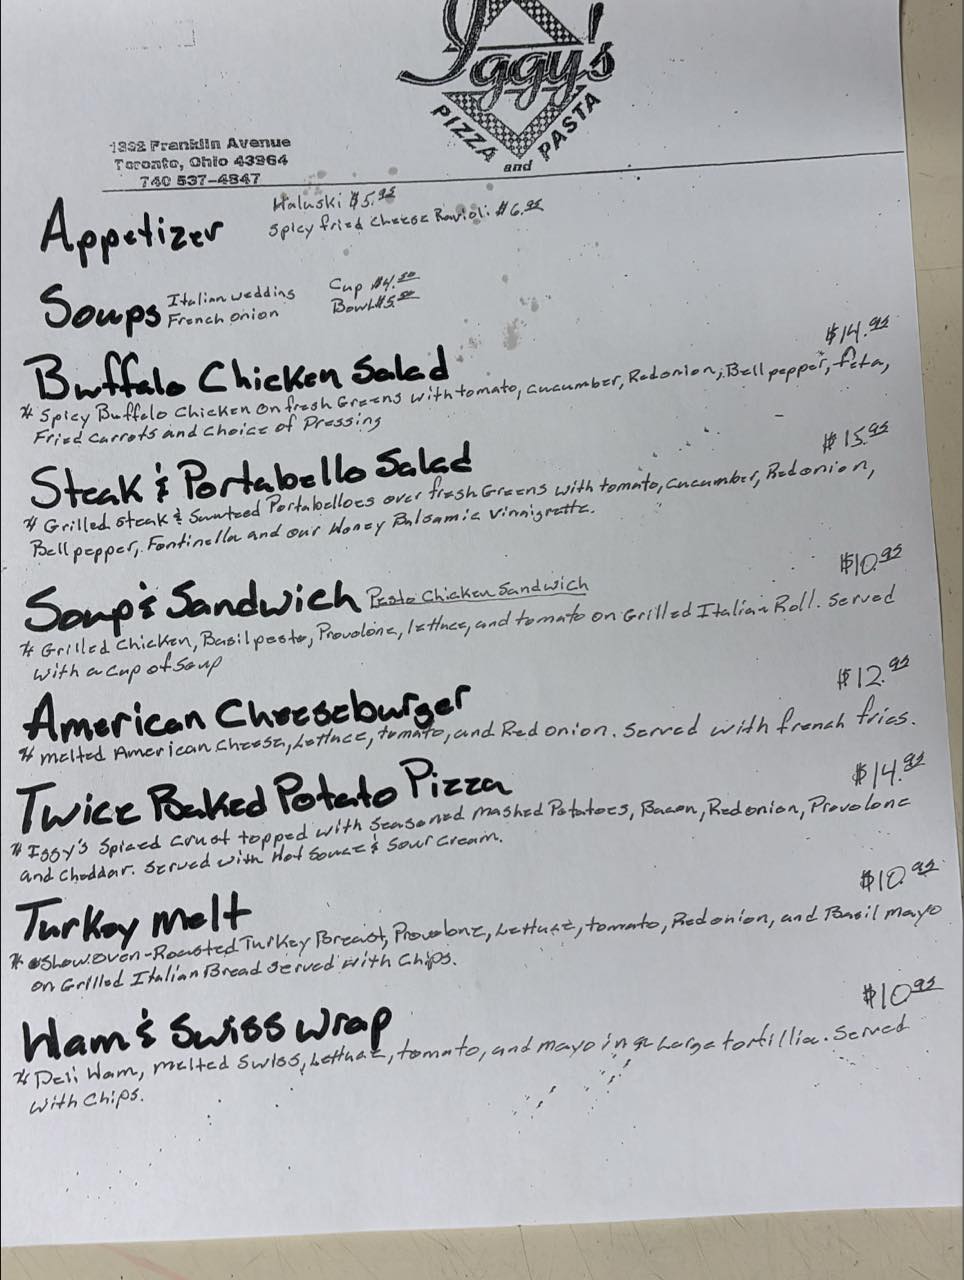 Iggy's
PIZZA and PASTA
1392 Franklin Avenue
Toronto, Ohio 43964
740 537-4847
Appetizer
Haluski $5.95
Spicy fried Cheese Ravioli $6.95
Soups
Italian wedding
French onion
Cup $4.50
Bowl $5.50
Buffalo Chicken Salad $14.95
* Spicy Buffalo Chicken on fresh Greens with tomato, cucumber, Red onion, Bell pepper, feta,
Fried Carrots and Choice of Dressing
Steak & Portabello Salad $15.95
* Grilled Steak & Sauteed Portabelloes over fresh Greens with tomato, cucumber, Red onion,
Bell pepper, Fontinella and our Honey Balsamic Vinaigrette.
Soup & Sandwich Pesto Chicken Sandwich $10.95
* Grilled Chicken, Basil pesto, Provolone, lettuce, and tomato on Grilled Italian Roll. Served
with a Cup of Soup
American Cheeseburger $12.95
* Melted American Cheese, Lettuce, tomato, and Red onion. Served with french fries.
Twice Baked Potato Pizza $14.95
* Iggy's Spiced Crust topped with Seasoned Mashed Potatoes, Bacon, Red onion, Provolone
and Cheddar. Served with Hot Sauce & Sour Cream.
Turkey Melt $10.95
* Slow oven-Roasted Turkey Breast, Provolone, Lettuce, tomato, Red onion, and Basil mayo
on Grilled Italian Bread Served with Chips.
Ham & Swiss Wrap $10.95
* Deli Ham, Melted Swiss, Lettuce, tomato, and mayo in a Large tortillia. Served
with Chips.